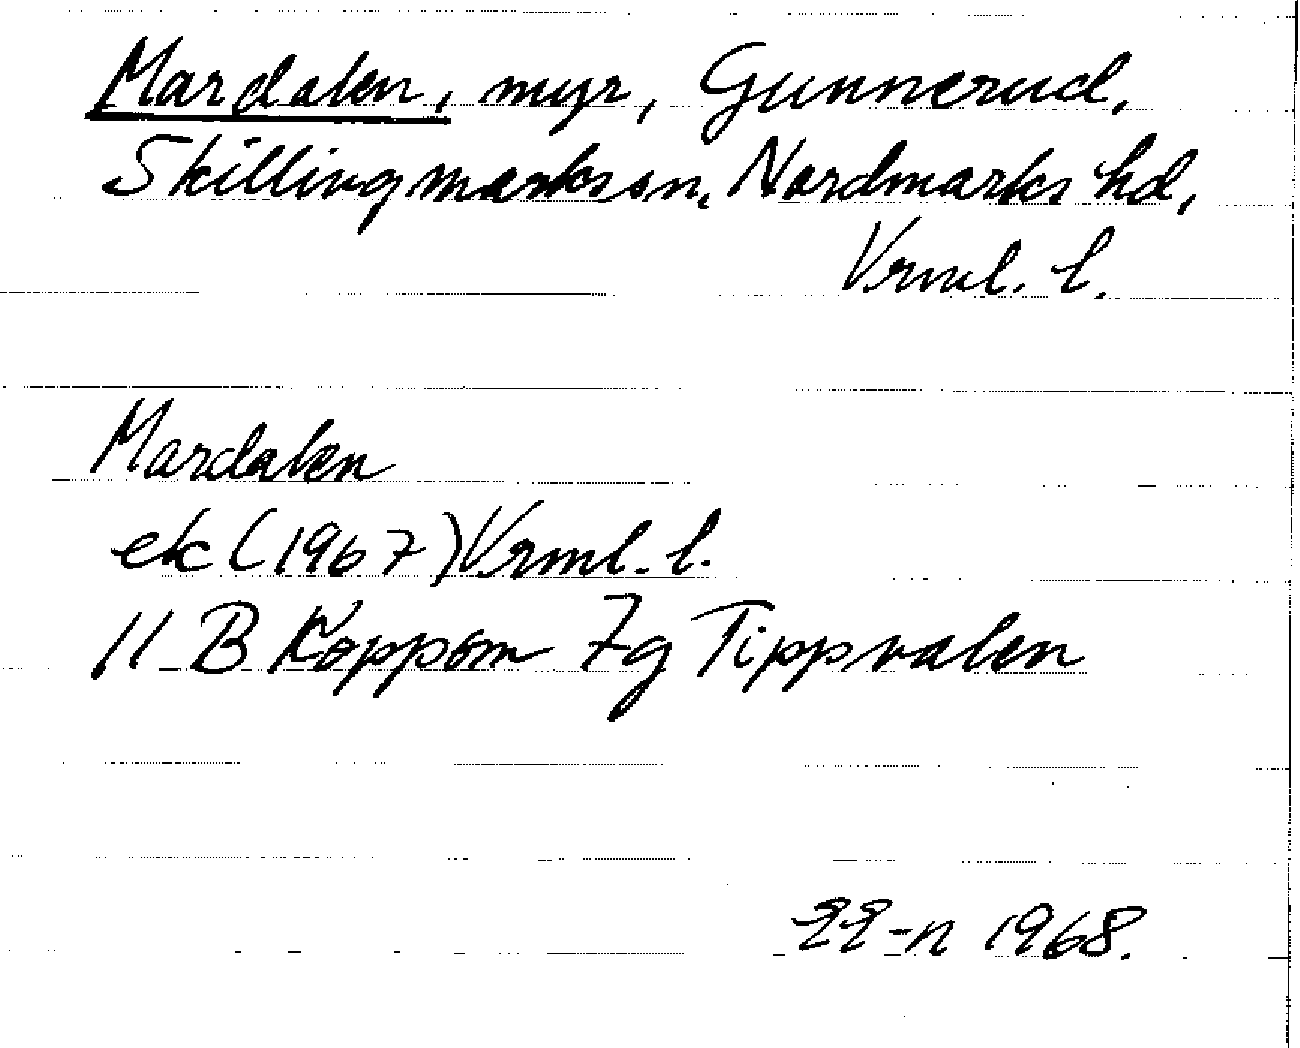 Mardalen, myr, Gunnerud,
Skillingmarks sn, Nordmarks hd,
Vrml. l.
Mardalen
ek (1967) Vrml. l.
11 B Koppom 7g Tippvalen
1968.